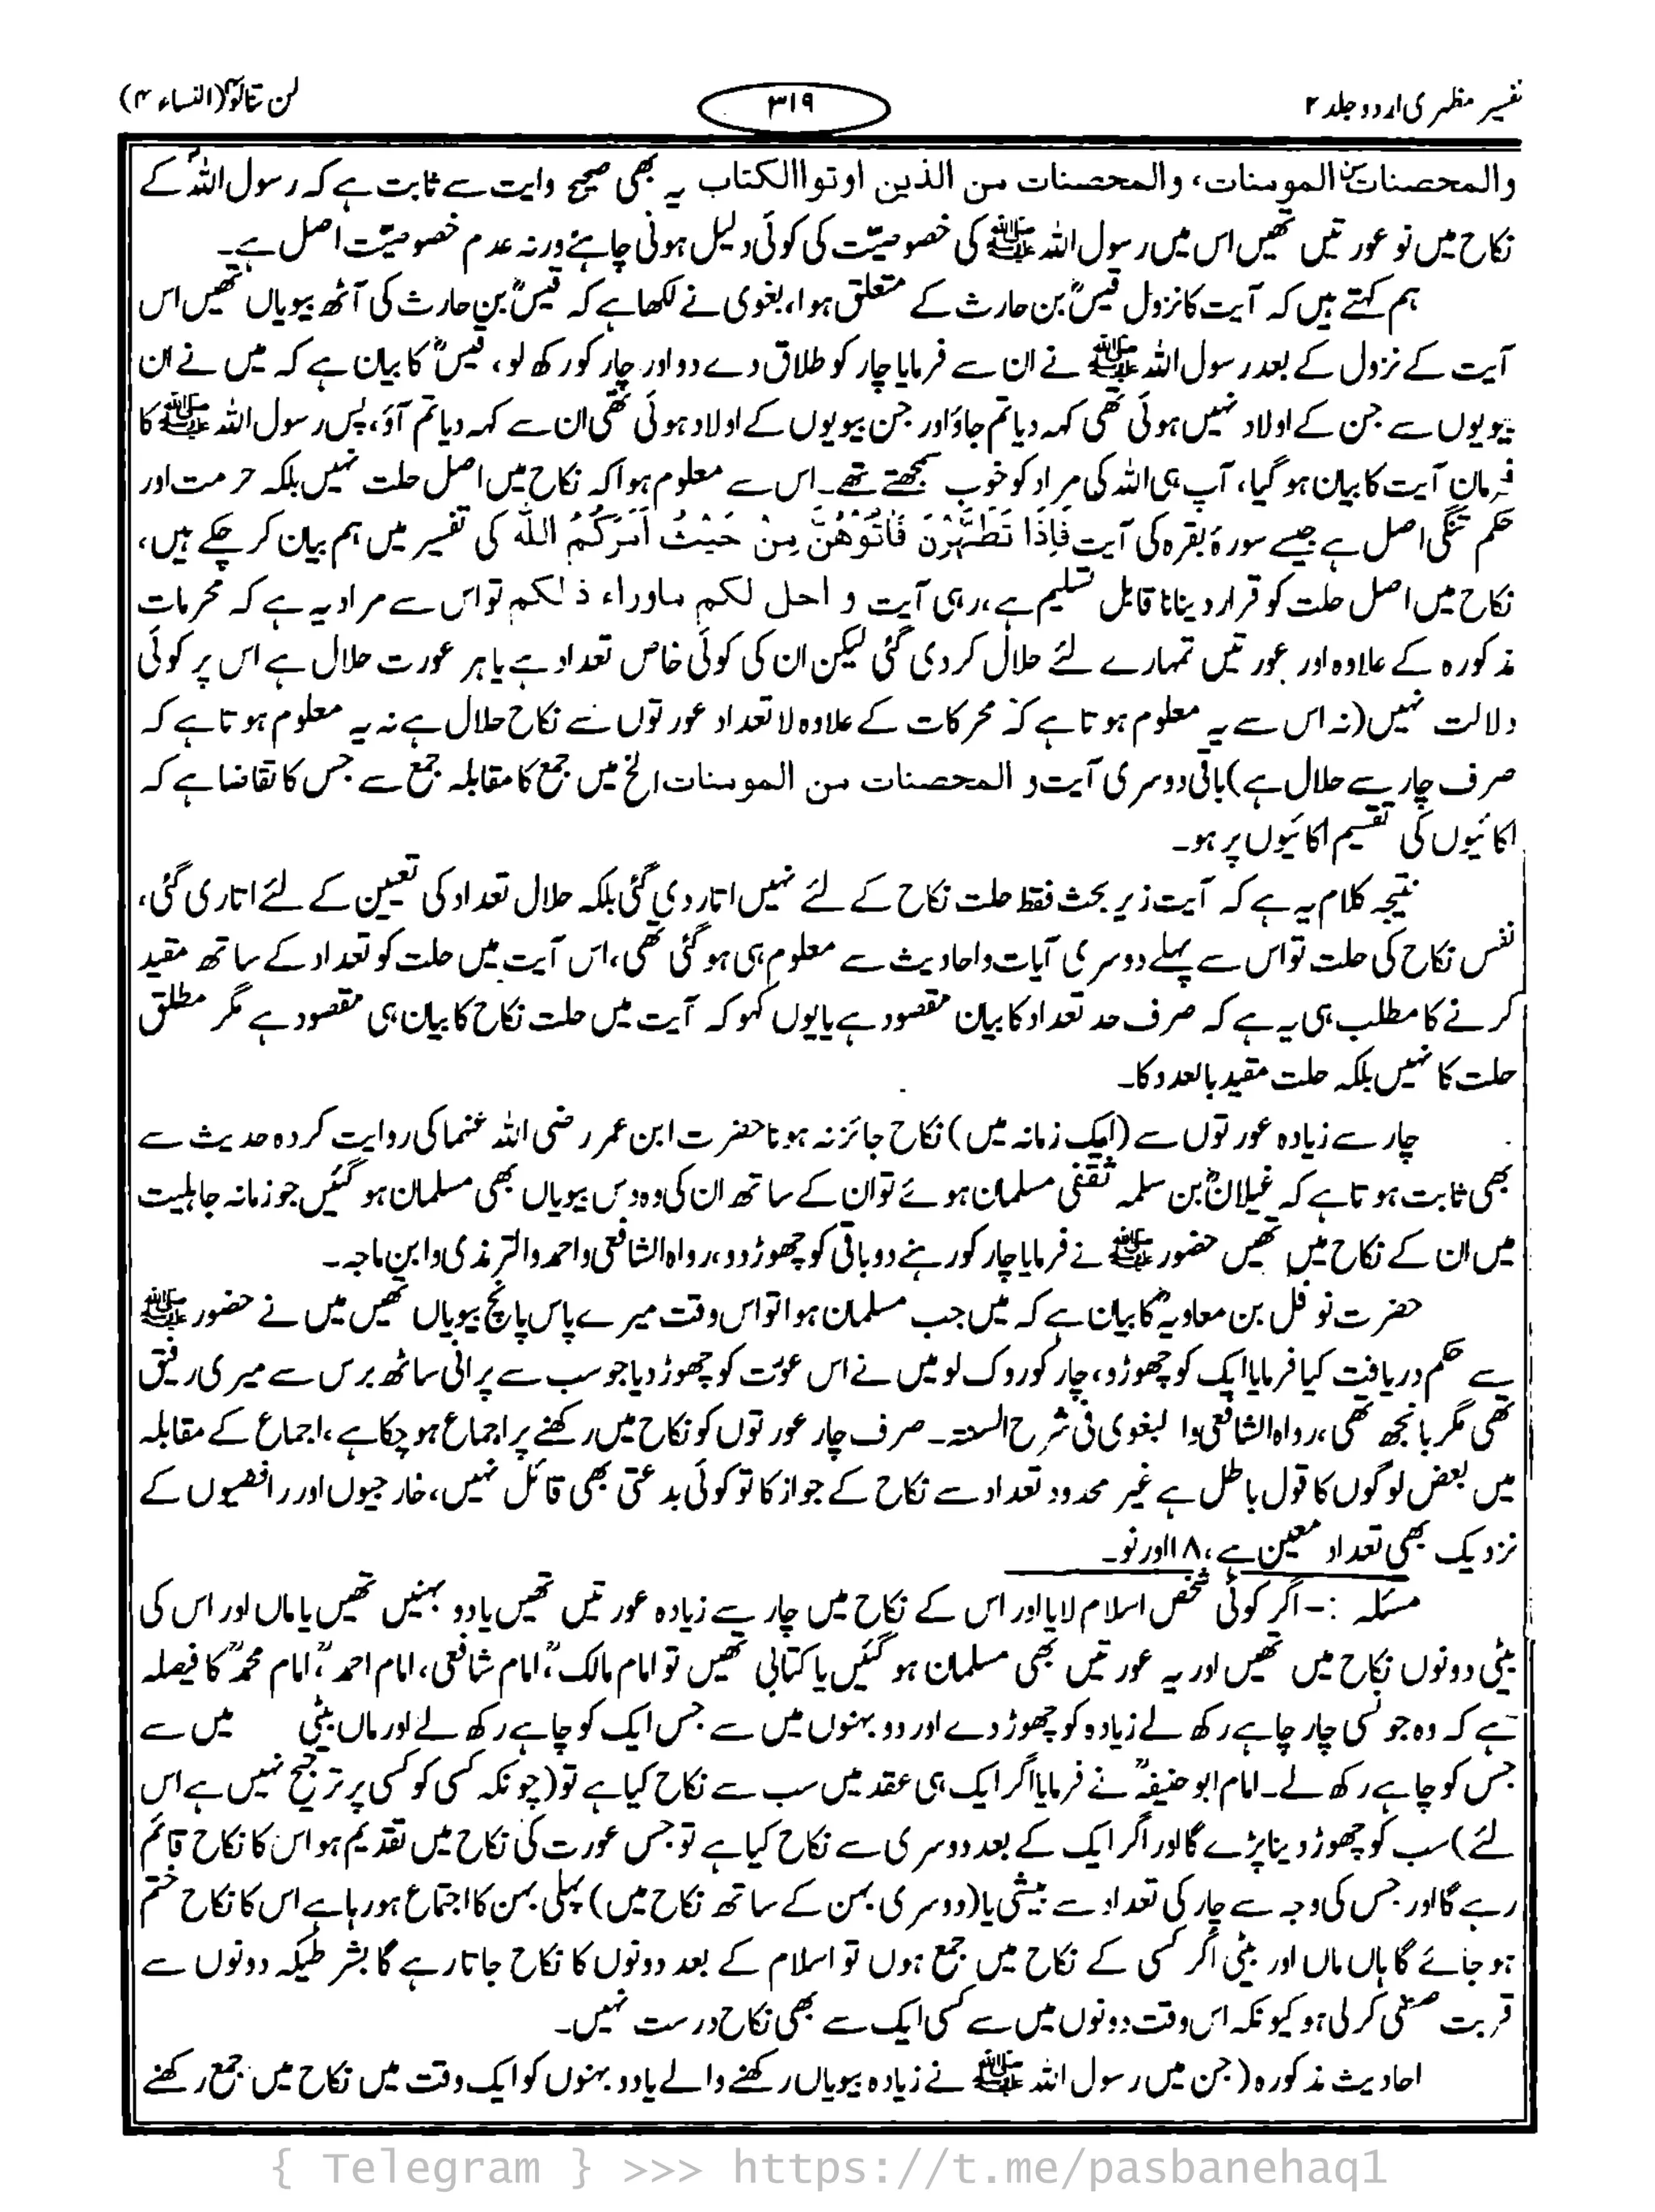 تفسیر مظہری اردو جلد ۲
۳۱۹
لن تنالوا (النساء ۴)
والمحصنات من المومنات، والمحصنات من الذین اوتوا الکتاب یہ بھی صحیح وایت سے ثابت ہے کہ رسول اللہؐ کے
نکاح میں نو عورتیں تھیں اس میں رسول اللہ ﷺ کی خصوصیّت کی کوئی دلیل ہونی چاہئے ورنہ عدم خصوصیّت اصل ہے۔
ہم کہتے ہیں کہ آیت کا نزول قیسؓ بن حارث کے متعلق ہوا، بغوی نے لکھا ہے کہ قیسؓ بن حارث کی آٹھ بیویاں تھیں اس
آیت کے نزول کے بعد رسول اللہ ﷺ نے ان سے فرمایا چار کو طلاق دے دو اور چار کو رکھ لو، قیسؓ کا بیان ہے کہ میں نے ان
بیویوں سے جن کے اولاد نہیں ہوئی تھی کہہ دیا تم جاؤ اور جن بیویوں کے اولاد ہوئی تھی ان سے کہہ دیا تم آؤ، پس رسول اللہ ﷺ کا
فرمان آیت کا بیان ہو گیا، آپ ہی اللہ کی مراد کو خوب سمجھتے تھے۔ اس سے معلوم ہوا کہ نکاح میں اصل حلت نہیں بلکہ حرمت اور
حکم تنگی اصل ہے جیسے سورۂ بقرہ کی آیت فَاِذَا تَطَهَّرْنَ فَاْتُوْهُنَّ مِنْ حَیْثُ اَمَرَكُمُ اللّٰہ کی تفسیر میں ہم بیان کر چکے ہیں،
نکاح میں اصل حلت کو قرار دینا نا قابل تسلیم ہے، رہی آیت و احل لکم ماوراء ذلکم تو اس سے مراد یہ ہے کہ محرمات
مذکورہ کے علاوہ اور عورتیں تمہارے لئے حلال کر دی گئی لیکن ان کی کوئی خاص تعداد ہے یا ہر عورت حلال ہے اس پر کوئی
دلالت نہیں (نہ اس سے یہ معلوم ہوتا ہے کہ محرکات کے علاوہ لا تعداد عورتوں سے نکاح حلال ہے نہ یہ معلوم ہوتا ہے کہ
صرف چار سے حلال ہے) باقی دوسری آیت و المحصنات من المومنات الخ میں جمع کا مقابلہ جمع سے جس کا تقاضا ہے کہ
اکائیوں کی تقسیم اکائیوں پر ہو۔
نتیجہ کلام یہ ہے کہ آیت زیر بحث فقط حلت نکاح کے لئے نہیں اتار دی گئی بلکہ حلال تعداد کی تعیین کے لئے اتاری گئی،
نفس نکاح کی حلت تو اس سے پہلے دوسری آیات واحادیث سے معلوم ہی ہو گئی تھی، اس آیت میں حلت کو تعداد کے ساتھ مقید
کرنے کا مطلب ہی یہ ہے کہ صرف حد تعداد کا بیان مقصود ہے یا یوں کہو کہ آیت میں حلت نکاح کا بیان ہی مقصود ہے مگر مطلق
حلت کا نہیں بلکہ حلت مقید بالعدد کا۔
چار سے زیادہ عورتوں سے (ایک زمانہ میں) نکاح جائز نہ ہونا حضرت ابن عمر رضی اللہ عنہما کی روایت کردہ حدیث سے
بھی ثابت ہوتا ہے کہ غیلانؓ بن سلمہ ثقفی مسلمان ہوئے تو ان کے ساتھ ان کی وہ دس بیویاں بھی مسلمان ہو گئیں جو زمانہ جاہلیت
میں ان کے نکاح میں تھیں حضور ﷺ نے فرمایا چار کو رہنے دو باقی کو چھوڑ دو، رواہ الشافعی واحمد والترمذی وابن ماجہ۔
حضرت نوفل بن معاویہؓ کا بیان ہے کہ میں جب مسلمان ہوا تو اس وقت میرے پاس پانچ بیویاں تھیں میں نے حضور ﷺ
سے حکم دریافت کیا فرمایا ایک کو چھوڑو، چار کو روک لو میں نے اس عورت کو چھوڑ دیا جو سب سے پرانی ساٹھ برس سے میری رفیق
تھی مگر بانجھ تھی، رواہ الشافعی وا لبغوی فی شرح السنتہ۔ صرف چار عورتوں کو نکاح میں رکھنے پر اجماع ہو چکا ہے، اجماع کے مقابلہ
میں بعض لوگوں کا قول باطل ہے غیر محدود تعداد سے نکاح کے جواز کا تو کوئی بدعتی بھی قائل نہیں، خارجیوں اور رافضیوں کے
نزدیک بھی تعداد معین ہے، ۱۸ اور نو۔
مسئلہ :- اگر کوئی شخص اسلام لایا اور اس کے نکاح میں چار سے زیادہ عورتیں تھیں یا دو بہنیں تھیں یا ماں اور اس کی
بیٹی دونوں نکاح میں تھیں اور یہ عورتیں بھی مسلمان ہو گئیں یا کتابی تھیں تو امام مالکؒ، امام شافعی، امام احمدؒ، امام محمدؒ کا فیصلہ
ہے کہ وہ جونسی چار چاہے رکھ لے زیادہ کو چھوڑ دے اور دو بہنوں میں سے جس ایک کو چاہے رکھ لے اور ماں بیٹی میں سے
جس کو چاہے رکھ لے۔ امام ابو حنیفہؒ نے فرمایا اگر ایک ہی عقد میں سب سے نکاح کیا ہے تو (چونکہ کسی کو کسی پر ترجیح نہیں ہے اس
لئے) سب کو چھوڑ دینا پڑے گا اور اگر ایک کے بعد دوسری سے نکاح کیا ہے تو جس عورت کی نکاح میں تقدیم ہو اس کا نکاح قائم
رہے گا اور جس کی وجہ سے چار کی تعداد سے بیشی یا (دوسری بہن کے ساتھ نکاح میں) پہلی بہن کا اجتماع ہو رہا ہے اس کا نکاح ختم
ہو جائے گا ہاں ماں اور بیٹی اگر کسی کے نکاح میں جمع ہوں تو اسلام کے بعد دونوں کا نکاح جاتا رہے گا بشرطیکہ دونوں سے
قربت صنفی کر لی ہو کیونکہ اس وقت دونوں میں سے کسی ایک سے بھی نکاح درست نہیں۔
احادیث مذکورہ (جن میں رسول اللہ ﷺ نے زیادہ بیویاں رکھنے والے یا دو بہنوں کو ایک وقت میں نکاح میں جمع رکھنے
{ Telegram } >>> https://t.me/pasbanehaq1